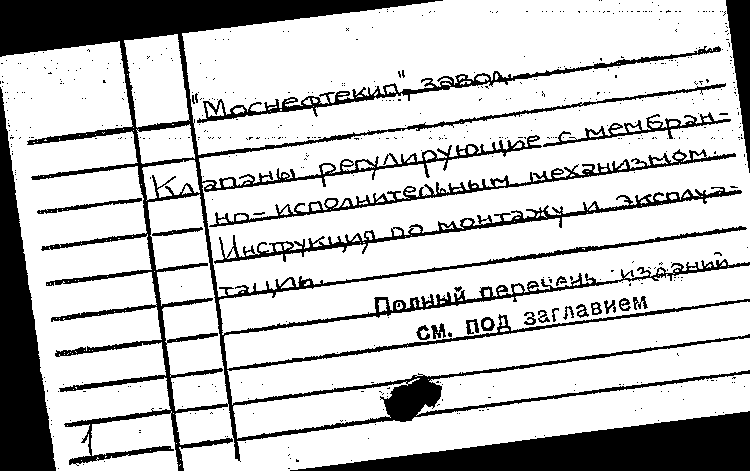 "Моснефтекип", завод.
Клапаны регулирующие с мембран-
но-исполнительным механизмом.
Инструкция по монтажу и эксплуа-
тации.
Полный перечень изданий
см. под заглавием
1